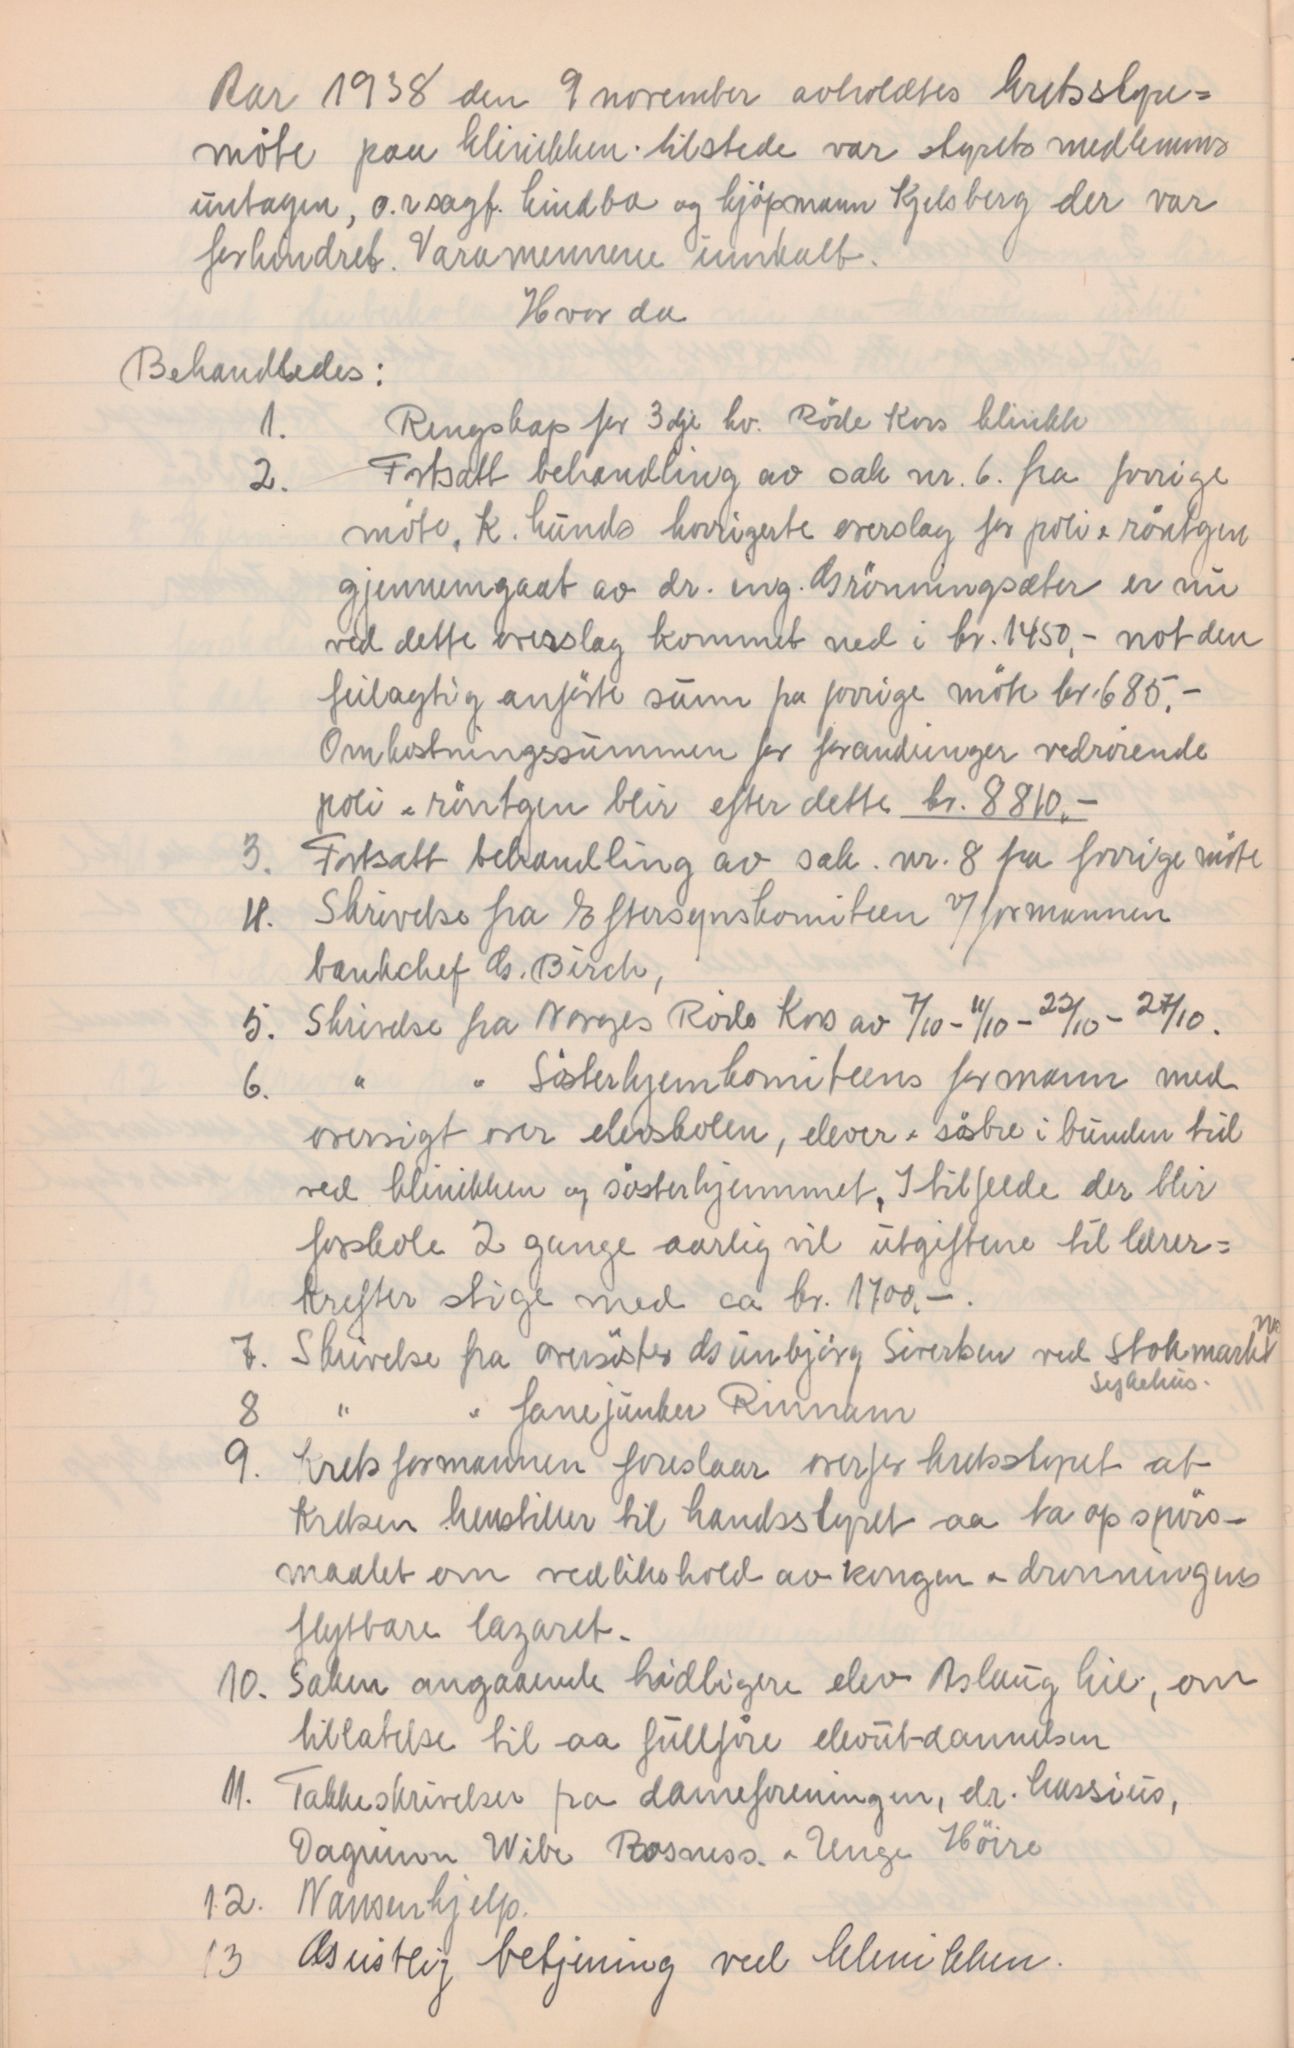 Aar 1938 den 9 november avholdtes kretsstyre=
möte paa klinikken. tilstede var styrets medlemmer
untagen, o.r.sagf. Lindboe og kjöpmann Kjelsberg der var
forhindret. Varamennene innkalt.
Hvor da
Behandledes:
1. Rengskap for 3dje kv. Röde Kors klinikk
2. Fortsatt behandling av sak nr. 6. fra forrige
möte. K. Lunds korrigerte overslag for poli & röntgen
gjennemgaat av dr. ing. Grönningsæter er nu
ved dette overslag kommet ned i kr. 1450,- mot den
feilagtig anförte sum fra forrige möte kr. 685,-
Omkostningssummen for forandringer vedrörende
poli & röntgen blir efter dette kr. 8810,-
3. Fortsatt behandling av sak. nr. 8 fra forrige möte
4. Skrivelse fra Eftersynskomiteen v/ formannen
bankchef G. Birch,
5. Skrivelse fra Norges Röde Kors av 7/10 - 11/10 - 22/10 - 27/10.
6. " " Sösterhjemkomiteens formann med
oversigt over elevskolen, elever & söstre i bunden tid
ved klinikken og sösterhjemmet. I tilfelde der blir
forskole 2 gange aarlig vil utgiftene til lærer=
krefter stige med ca kr. 1700,-.
7. Skrivelse fra oversöster Gunbjörg Sivertsen ved Stokmarknes
Sykehus.
8 " " fanejunker Rinnam
9. Kretsformannen foreslaar overfor kretsstyret at
Kretsen henstiller til Landsstyret aa ta op spörs-
maalet om vedlikehold av kongen & dronningens
flytbare lazaret.
10. Saken angaaende tidligere elev Aslaug Lie, om
tillatelse til aa fullföre elevutdannelsen
11. Takkeskrivelser fra dameforeningen, dr. Cassius,
Dagunn Wibe Rosness. & Unge Höire
12. Nansenhjelp.
13 Geistlig betjening ved klinikken.